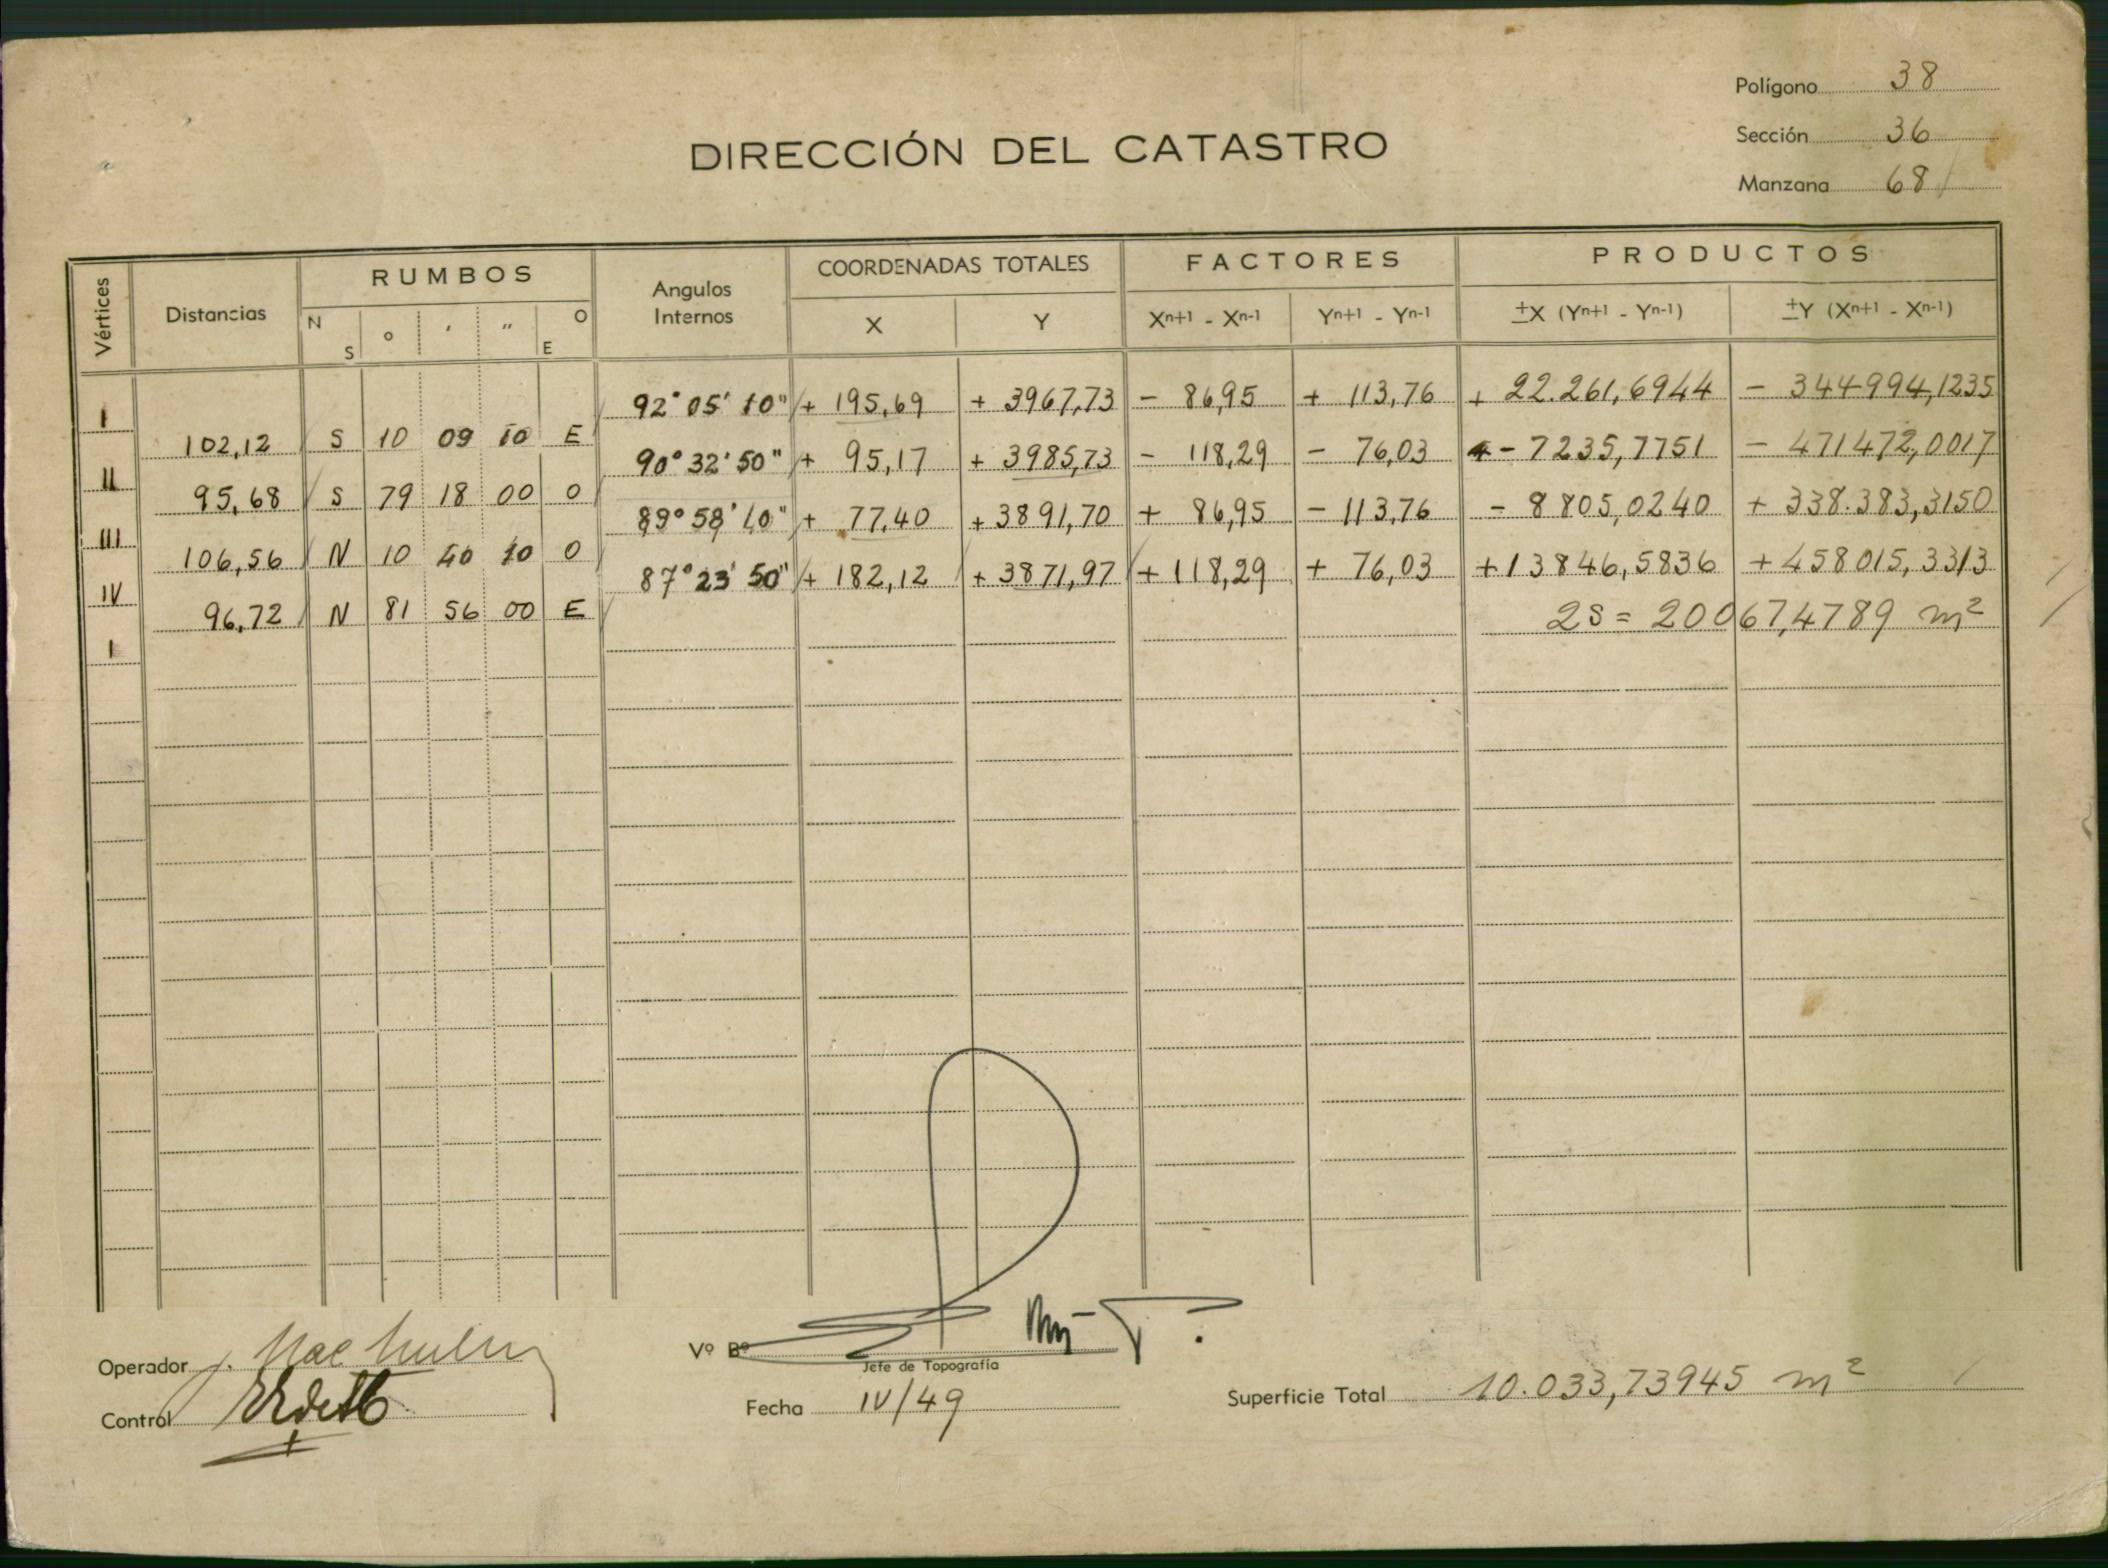 Polígono 38
Sección 36
Manzana 68
DIRECCIÓN DEL CATASTRO
Vértices Distancias RUMBOS Angulos Internos COORDENADAS TOTALES FACTORES PRODUCTOS
N S ° ' " O E X Y Xn+1 - Xn-1 Yn+1 - Yn-1 ±X (Yn+1 - Yn-1) ±Y (Xn+1 - Xn-1)
I 92° 05' 10" + 195,69 + 3967,73 - 86,95 + 113,76 + 22.261,6944 - 344994,1235
102,12 S 10 09 10 E
II 90° 32' 50" + 95,17 + 3985,73 - 118,29 - 76,03 - 7235,7751 - 471472,0017
95,68 S 79 18 00 O
III 89° 58' 10" + 77,40 + 3891,70 + 86,95 - 113,76 - 8805,0240 + 338.383,3150
106,56 N 10 40 10 O
IV 87° 23' 50" + 182,12 + 3871,97 + 118,29 + 76,03 + 13846,5836 + 458015,3313
96,72 N 81 56 00 E
I
2S = 20067,4789 m²
Operador
Control
Vº Bº
Jefe de Topografía
Fecha IV/49
Superficie Total 10.033,73945 m²